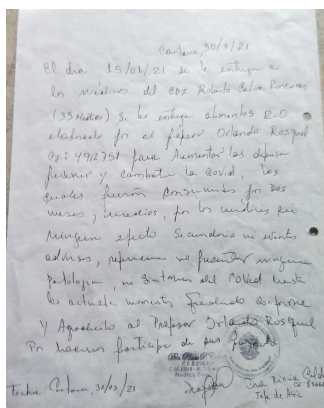 Cantaura, 30/3/21
El dia 15/01/21 se le entrega a
los médicos del CDI Roberto
(35 Medicos) Se les entrega alimentos R-O
elaborado por el Profesor Orlando Rosquel
C.I: 4912751 para Aumentar las defensa
prevenir y combatir la covid, las
cuales fueron consumidos por dos
meses, por los medicos sin
ningun efecto Secundario ni evento
adverso, no presentar ninguna
patologia, ni sintomas del COVID hasta
los actuales momentos conforme
Y Agradecido al Profesor Orlando Rosquel
Por hacernos participe de sus
Fecha Cantaura, 30/03/21
Dra